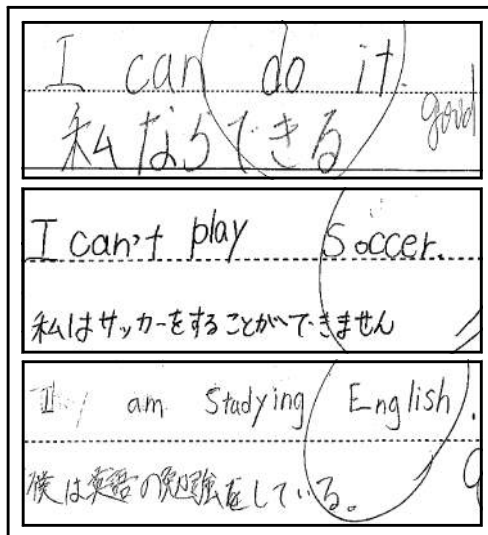 I can do it.
私ならできる
good
I can't play Soccer.
私はサッカーをすることができません
I am Studying English.
僕は英語の勉強をしている。